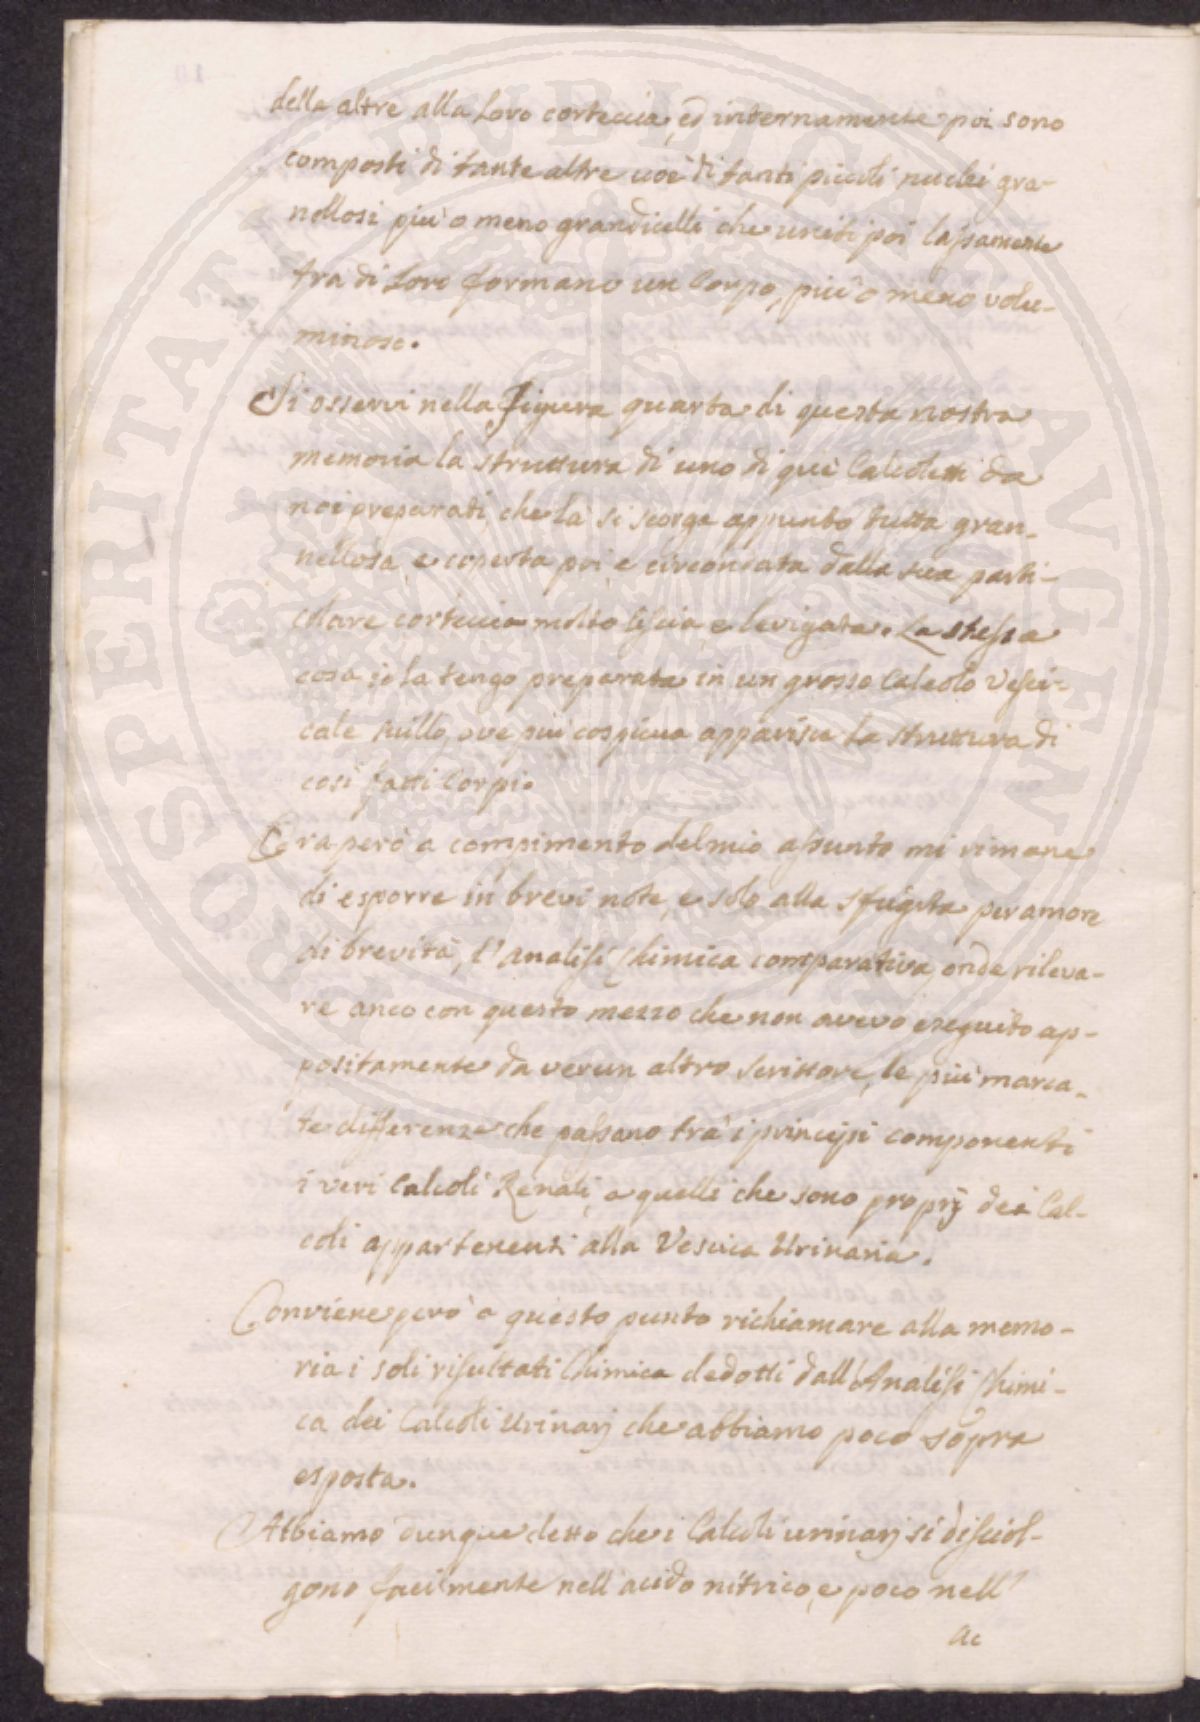 della altre alla Loro corteccia, ed internamente poi sono
composti di tante altre di tanti piccoli nuclei gra-
nellosi più o meno grandicelli che uniti poi lassamente
tra di Loro formano un Corpo, più o meno volu-
minoso.
Si osservi nella Figura quarta di questa nostra
memoria la struttura di uno di que' Calcoletti da
noi preparati, che là si scorge appunto tutta gran-
nellosa, e coperta poi, e circondata dalla sua parti-
colare corteccia molto liscia, e levigata. La stessa
cosa io la tengo preparata in un grosso Calcolo Vesci-
cale ove più cospicua apparisce la struttura di
così fatti Corpi.
Ora però a compimento del mio assunto mi rimane
di esporre in brevi note, e solo alla sfugita per amore
di brevità, l'Analisi Chimica comparativa, onde rileva-
re anco con questo mezzo che non avevo eseguito ap-
positamente da verun altro Scrittore, le più marca-
te differenze che passano trà i principj componenti
i veri Calcoli Renali, a quelli che sono proprj dei Cal-
coli appartenenti alla Vescica Urinaria.
Conviene però a questo punto richiamare alla memo-
ria i soli risultati Chimica dedotti dall'Analisi Chimi-
ca dei Calcoli Urinarj che abbiamo poco sopra
esposta.
Abbiamo dunque detto che i Calcoli urinarj si disciol-
gono facilmente nell'acido nitrico, e poco nell'
ac